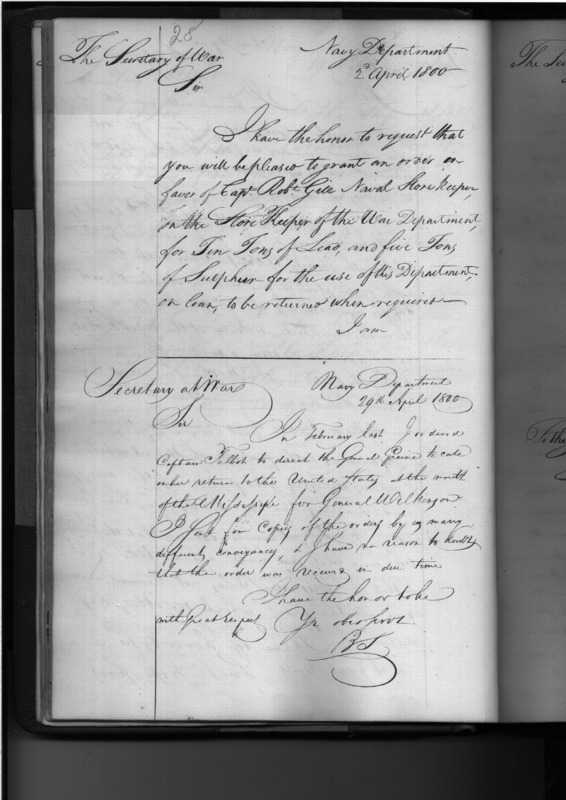 28
The Secretary of War
Navy Department
2d April 1800
Sir
I have the honor to request that
you will be pleased to grant an order in
favor of Capt. Robt. Gill Naval Store keeper,
on the Store Keeper of the War Department,
for Ten Tons of Lead, and five Tons
of Sulphur for the use of this Department,
on loan, to be returned when required
I am
Secretary at War
Navy Department
29th April 1800
Sir
In February last I ordered
Captain Talbot to direct the General Greene to call
on her return to the United States at the mouth
of the Missisippi for General Wilkinson
I sent four Copies of the orders by as many
different conveyances, & I have no reason to doubt
that the order was received in due time
I have the honor to be
with great respect Yr obed servt
BS
The Sec
To the